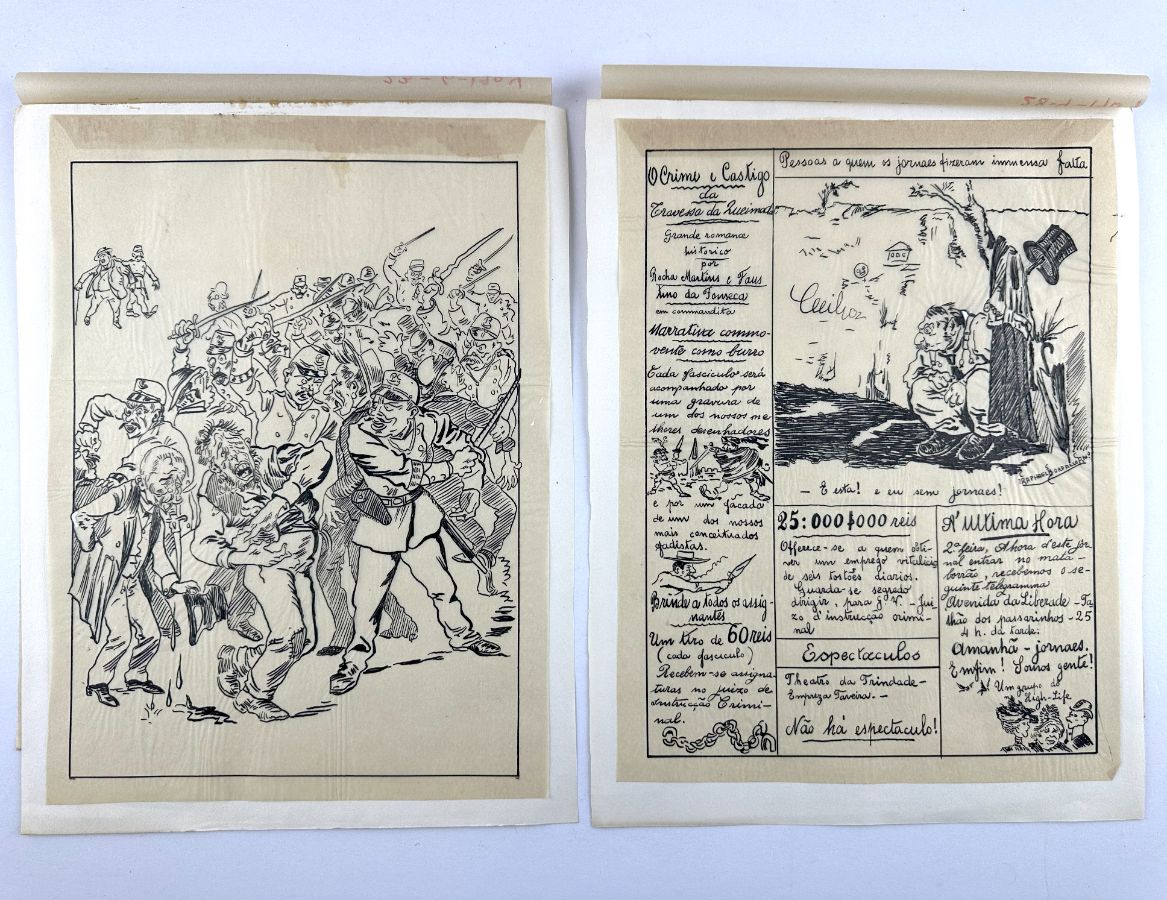 O Crime e Castigo
da
Travessa da Queimada
Grande romance
historico
por
Rocha Martins e Faus
tino da Fonseca
em commandita
Narrativa commo-
vente como burro
Cada fasciculo será
acompanhado por
uma gravura de
um dos nossos me
lhores desenhadores
e por um facada
de um dos nossos
mais conceituados
fadistas.
Brinde a todos os assig-
nantes
Um tiro de 60 reis
(cada fasciculo)
Recebem-se assigna-
turas no juizo de
instrucção Crimi-
nal.
Pessoas a quem os jornaes fizeram immensa falta
RAPHAEL BORDALLO PINHEIRO
— E esta! e eu sem jornaes!
25:000$000 reis
Offerece-se a quem obti-
ver um emprego vitalicio
de seis tostões diarios.
Guarda-se segredo
dirigir, para J. V. - Jui-
zo d'instrucção crimi-
nal
Espectaculos
Theatro da Trindade-
Empreza Taveira. -
Não há espectaculo!
A' Ultima Hora
2ª feira, Á hora d'este jor-
nal entrar no mata-
borrão, recebemos o se-
guinte telegramma
Avenida da Liberdade - Ta-
lhão dos passarinhos - 25
4 h. da tarde:
Amanhã - jornaes.
Emfim! Somos gente!
Um grupo do
High-Life